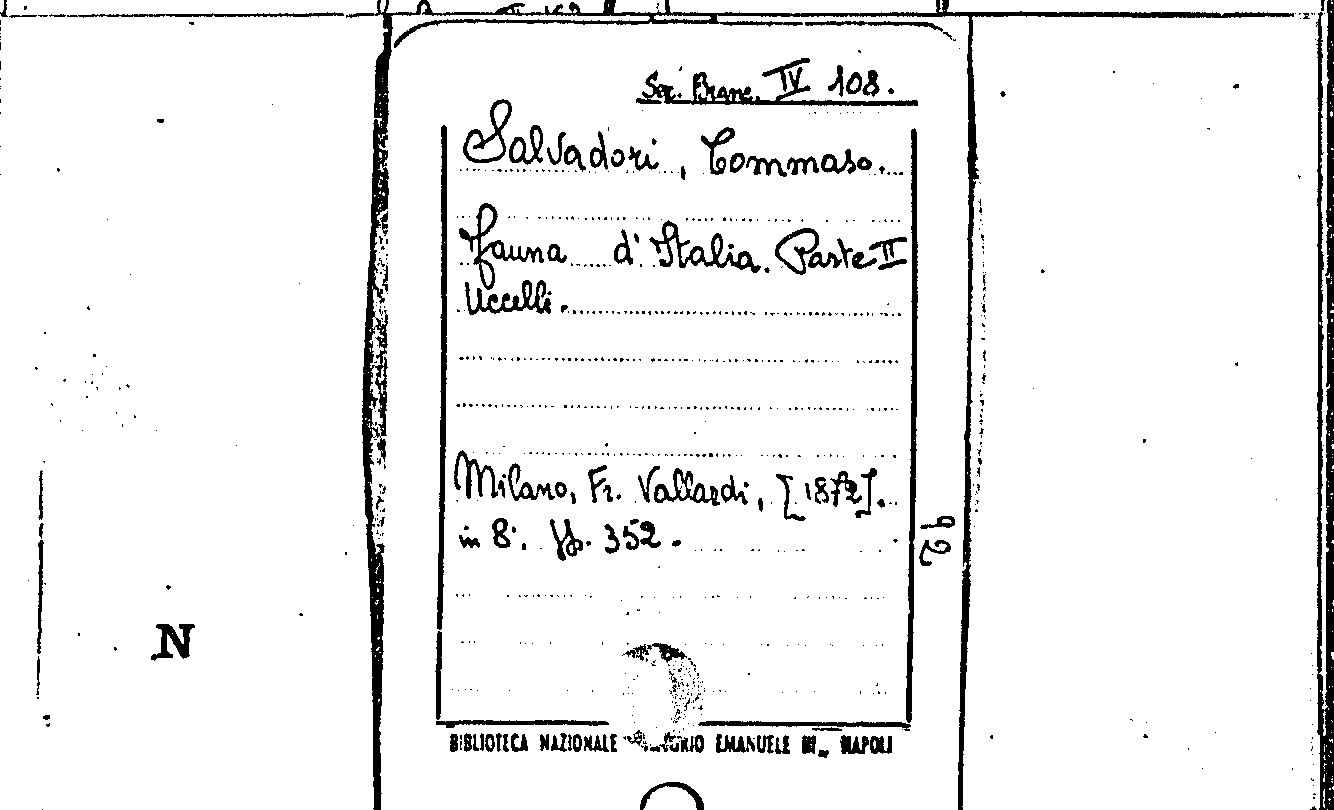 Sez. Branc. IV 108.
Salvadori, Tommaso.
Fauna d'Italia. Parte II
Uccelli.
Milano, Fr. Vallardi, [1872].
in 8°. pp. 352.
92
N
BIBLIOTECA NAZIONALE EMANUELE III - NAPOLI